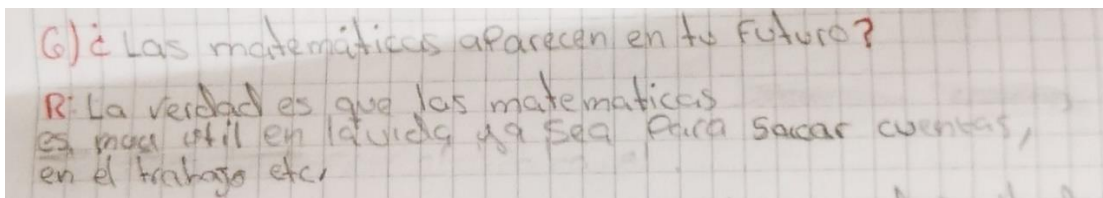 6) ¿Las matemáticas aparecen en tu Futuro?
R: La verdad es que las matematicas
es muy util en la vida ya sea para sacar cuentas,
en el trabago etc.